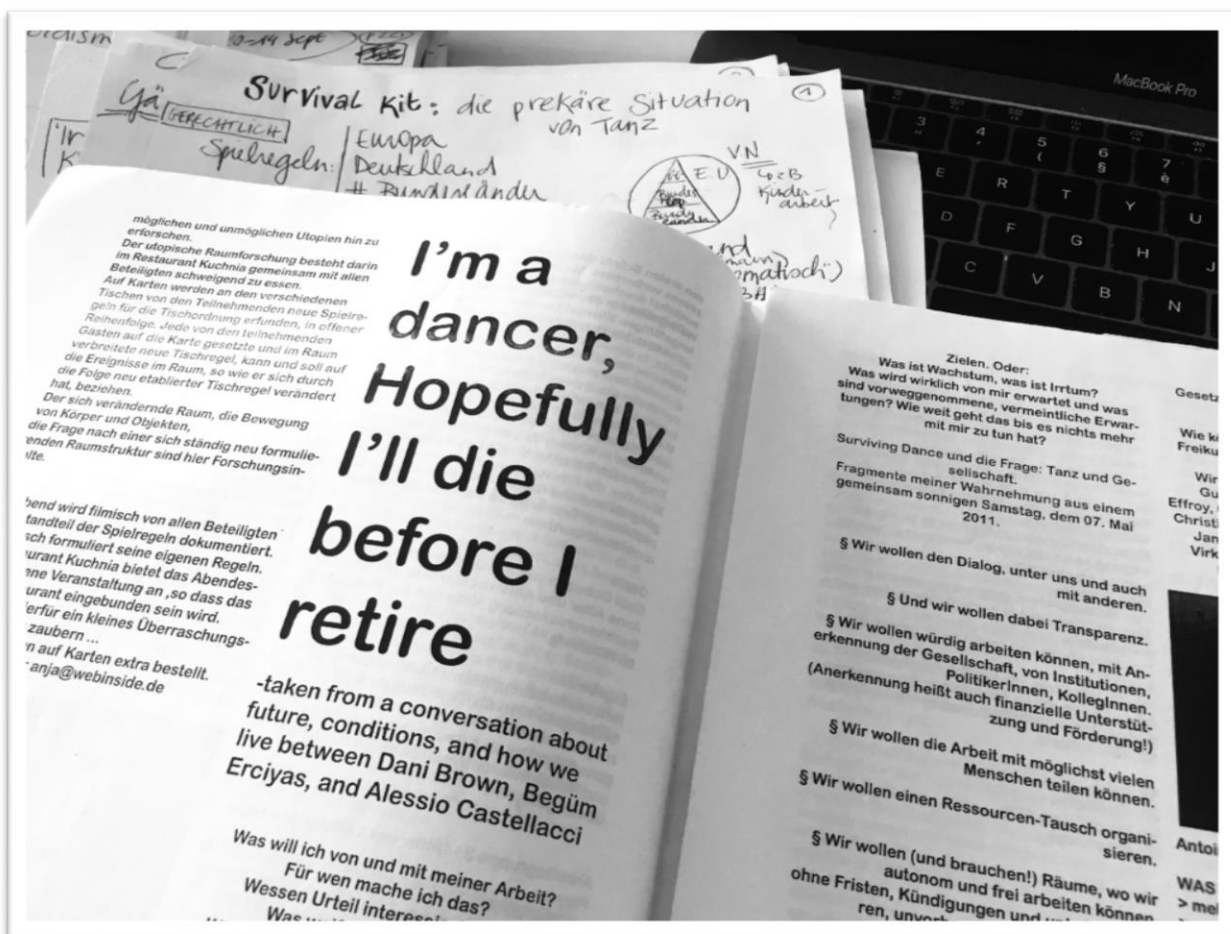 0-14 Sept
Survival Kit: die prekäre Situation
von Tanz
①
GERECHTLICH
Spielregeln:
Europa
Deutschland
# Bundesländer
E.U
VN
z.B
Kinder-
arbeit
MacBook Pro
3
4
5
(
6
§
7
è
E
R
T
Y
U
D
F
G
H
J
C
V
B
N
möglichen und unmöglichen Utopien hin zu
erforschen.
Der utopische Raumforschung besteht darin
im Restaurant Kuchnia gemeinsam mit allen
Beteiligten schweigend zu essen.
Auf Karten werden an den verschiedenen
Tischen von den Teilnehmenden neue Spielre-
geln für die Tischordnung erfunden, in offener
Reihenfolge. Jede von den teilnehmenden
Gasten auf die Karte gesetzte und im Raum
verbreitete neue Tischregel, kann und soll auf
die Ereignisse im Raum, so wie er sich durch
die Folge neu etablierter Tischregel verändert
hat, beziehen.
Der sich verändernde Raum, die Bewegung
von Körper und Objekten,
die Frage nach einer sich ständig neu formulie-
enden Raumstruktur sind hier Forschungsin-
alte.
bend wird filmisch von allen Beteiligten
tandteil der Spielregeln dokumentiert.
sch formuliert seine eigenen Regeln.
urant Kuchnia bietet das Abendes-
ne Veranstaltung an ,so dass das
urant eingebunden sein wird.
erfür ein kleines Überraschungs-
zaubern ...
n auf Karten extra bestellt.
anja@webinside.de
I'm a
dancer,
Hopefully
I'll die
before I
retire
-taken from a conversation about
future, conditions, and how we
live between Dani Brown, Begüm
Erciyas, and Alessio Castellacci
Was will ich von und mit meiner Arbeit?
Für wen mache ich das?
Wessen Urteil
Was
Zielen. Oder:
Was ist Wachstum, was ist Irrtum?
Was wird wirklich von mir erwartet und was
sind vorweggenommene, vermeintliche Erwar-
tungen? Wie weit geht das bis es nichts mehr
mit mir zu tun hat?
Surviving Dance und die Frage: Tanz und Ge-
sellschaft.
Fragmente meiner Wahrnehmung aus einem
gemeinsam sonnigen Samstag, dem 07. Mai
2011.
§ Wir wollen den Dialog, unter uns und auch
mit anderen.
§ Und wir wollen dabei Transparenz.
§ Wir wollen würdig arbeiten können, mit An-
erkennung der Gesellschaft, von Institutionen,
PolitikerInnen, KollegInnen.
(Anerkennung heißt auch finanzielle Unterstüt-
zung und Förderung!)
§ Wir wollen die Arbeit mit möglichst vielen
Menschen teilen können.
§ Wir wollen einen Ressourcen-Tausch organi-
sieren.
§ Wir wollen (und brauchen!) Räume, wo wir
autonom und frei arbeiten können
ohne Fristen, Kündigungen und
Gesetz
Wie k
Freiku
Wir
Gu
Effroy,
Christ
Jan
Virk
Antoi
WAS
> mel